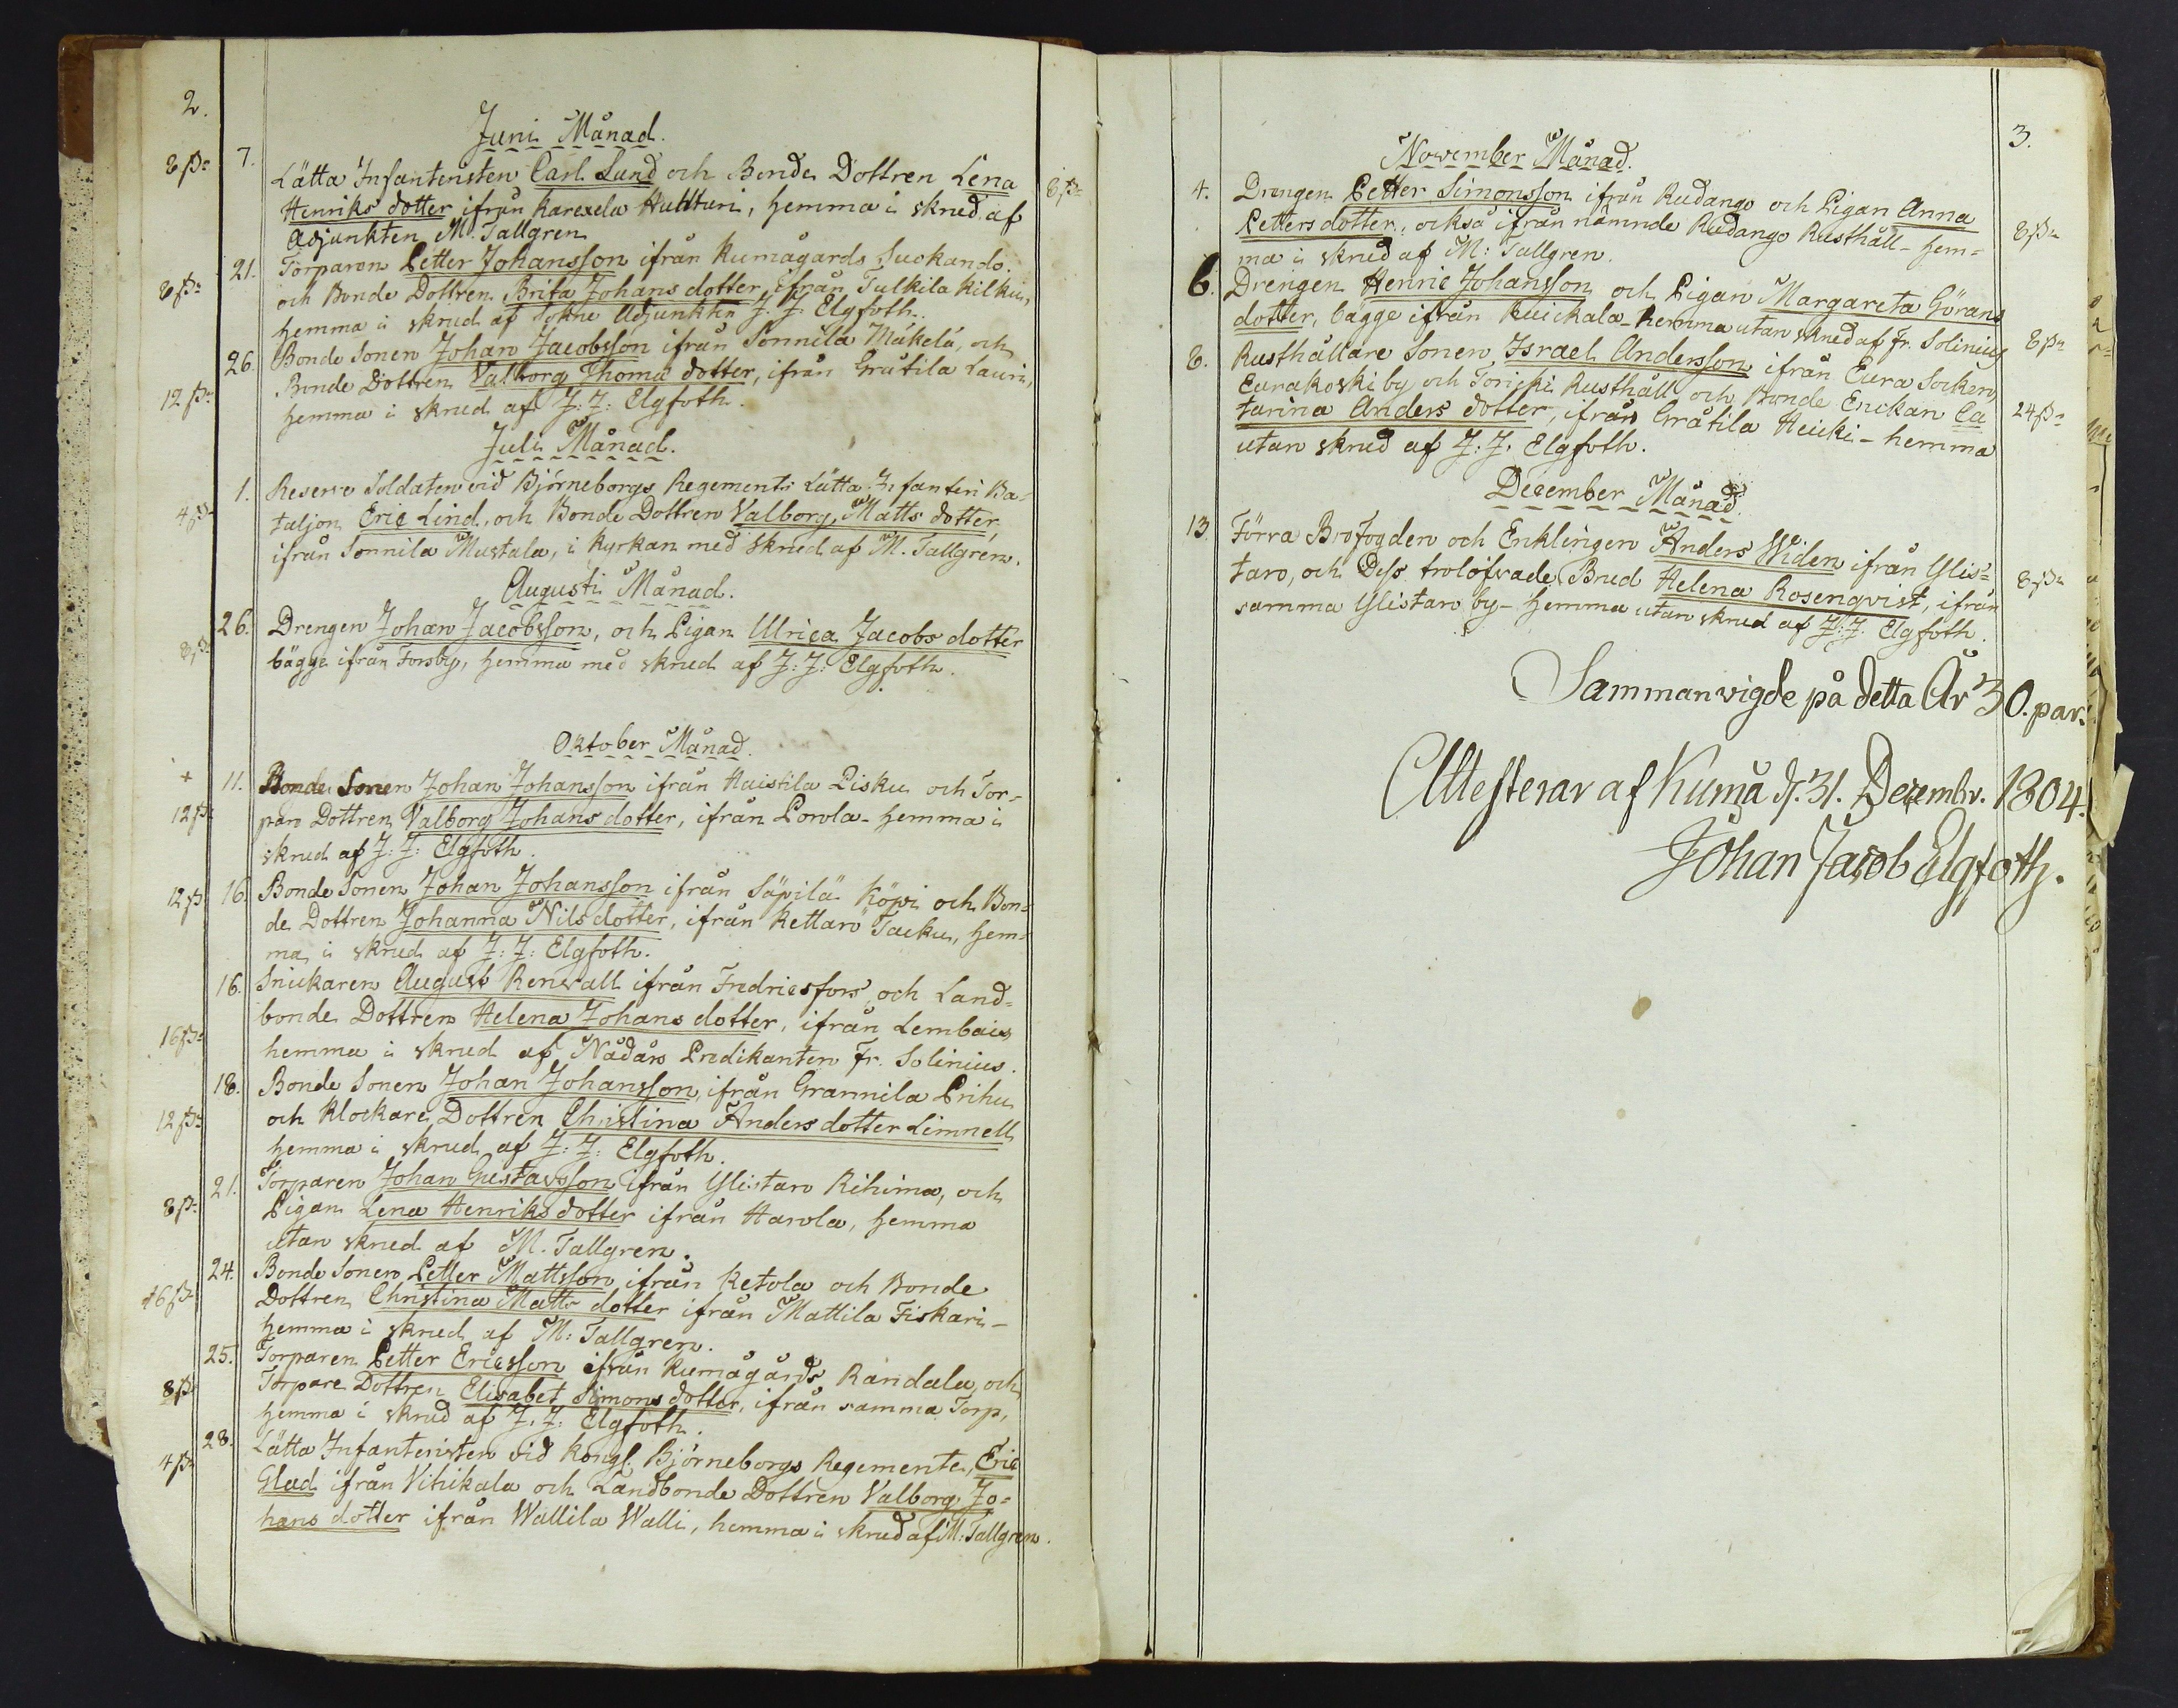 2.
Juni Månad.
8 ß: 7. Lätta Infanteristen Carl Lund och Bonde Dottren Lena 8 ß:
Henriks dotter ifrån Karexela Huhturi, hemma i skrud af
Adjunkten M. Tallgren
8 ß: 21. Torparen Petter Johansson ifrån Kumågårds Suokando.
och Bonde Dottren Brita Johans dotter, ifrån Tulkila Kilku,
hemma i skrud af Sokne Adjunkten J. J. Elgfoth.
26. Bonde Sonen Johan Jacobsson ifrån Sonnila Mäkelä, och
12 ß: Bonde Dottren Valborg Thomæ dotter, ifrån Gråtila Lauri,
hemma i skrud af J: J: Elgfoth.
Juli Månad.
1. Reserve Soldaten vid Björneborgs Regements Lätta Infanteri Ba=
4 ß: taljon Eric Lind, och Bonde Dottren Valborg Matts dotter
ifrån Sonnila Mustala, i Kyrkan med skrud af M. Tallgren.
Augusti Månad.
26. Drengen Johan Jacobsson, och Pigan Ulrica Jacobs dotter
8 ß: bägge ifrån Forsby, hemma med skrud af J: J: Elgfoth.
Oktober Månad.
+ 11. Bonde Sonen Johan Johansson ifrån Haistila Pisku och Tor=
12 ß: pare Dottren Valborg Johans dotter, ifrån Lowla - hemma i
skrud af J: J: Elgfoth.
12 ß: 16. Bonde Sonen Johan Johansson ifrån Säpilä Köpi och Bon=
de Dottren Johanna Nils dotter, ifrån Kettarö Tacku, hem=
ma i skrud af J: J: Elgfoth.
16. Snickaren August Renvall ifrån Fredricsfors, och Land=
bonde Dottren Helena Johans dotter, ifrån Lembais
16 ß: hemma i skrud af Nådårs Predikanten Fr. Solinius.
18. Bonde Sonen Johan Johansson, ifrån Grannila Prihu
12 ß: och Klockare Dottren Christina Anders dotter Limnell
hemma i skrud af J: J: Elgfoth.
21. Torparen Johan Gustavsson ifrån Ylistaro Rihima, och
8 ß: Pigan Lena Henriks dotter ifrån Harola, hemma
utan skrud af M. Tallgren.
24. Bonde Sonen Petter Mattsson ifrån Ketola och Bonde
16 ß: Dottren Christina Matts dotter ifrån Mattila Fiskari -
hemma i skrud af M: Tallgren.
25. Torparen Petter Ericsson ifrån Kumågårds Randala, och
8 ß: Torpare Dottren Elisabet Simons dotter, ifrån samma Torp,
hemma i skrud af J. J: Elgfoth.
28. Lätta Infanteristen vid Kongl. Björneborgs Regemente, Eric
4 ß: Glad ifrån Vitikala och Landbonde Dottren Valborg Jo=
hans dotter ifrån Wallila Walli, hemma i skrud af M: Tallgren.
3.
November Månad.
4. Drengen Petter Simonsson ifrån Rudango och Pigan Anna
Petters dotter, också ifrån nämnde Rudango Rusthåll - hem= 8 ß:
ma i skrud af M: Tallgren.
6. Drengen Henric Johansson och Pigan Margareta Görans
dotter, bägge ifrån Kuickala - hemma utan skrud af Fr. Solinius 8 ß:
8. Rusthållare Sonen Israel Andersson ifrån Eura Socken,
Eurakoski by och Toriski Rusthåll och Bonde Enckan Ca
tarina Anders dotter, ifrån Gråtila Heicki - hemma 24 ß:
utan skrud af J: J. Elgfoth.
December Månad.
13. Förra Brofogden och Enklingen Anders Widen ifrån Ylis=
taro, och Dess trolofvade Brud Helena Rosenqvist, ifrån 8 ß:
samma Ylistaro by - hemma utan skrud af J: J: Elgfoth.
Sammanvigde på detta År 30. par.
Attesterar af Kumå d. 31. Decembr. 1804.
Johan Jacob Elgfoth.